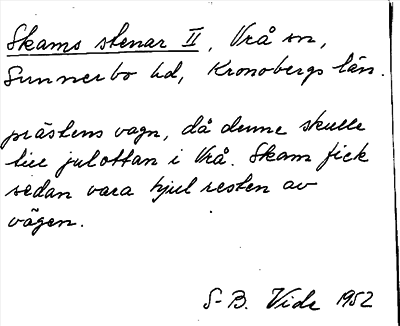 Skams stenar II, Vrå sn,
Sunnerbo hd, Kronobergs län.
prästens vagn, då denne skulle
till julottan i Vrå. Skam fick
sedan vara hjul resten av
vägen.
S-B. Vide 1952